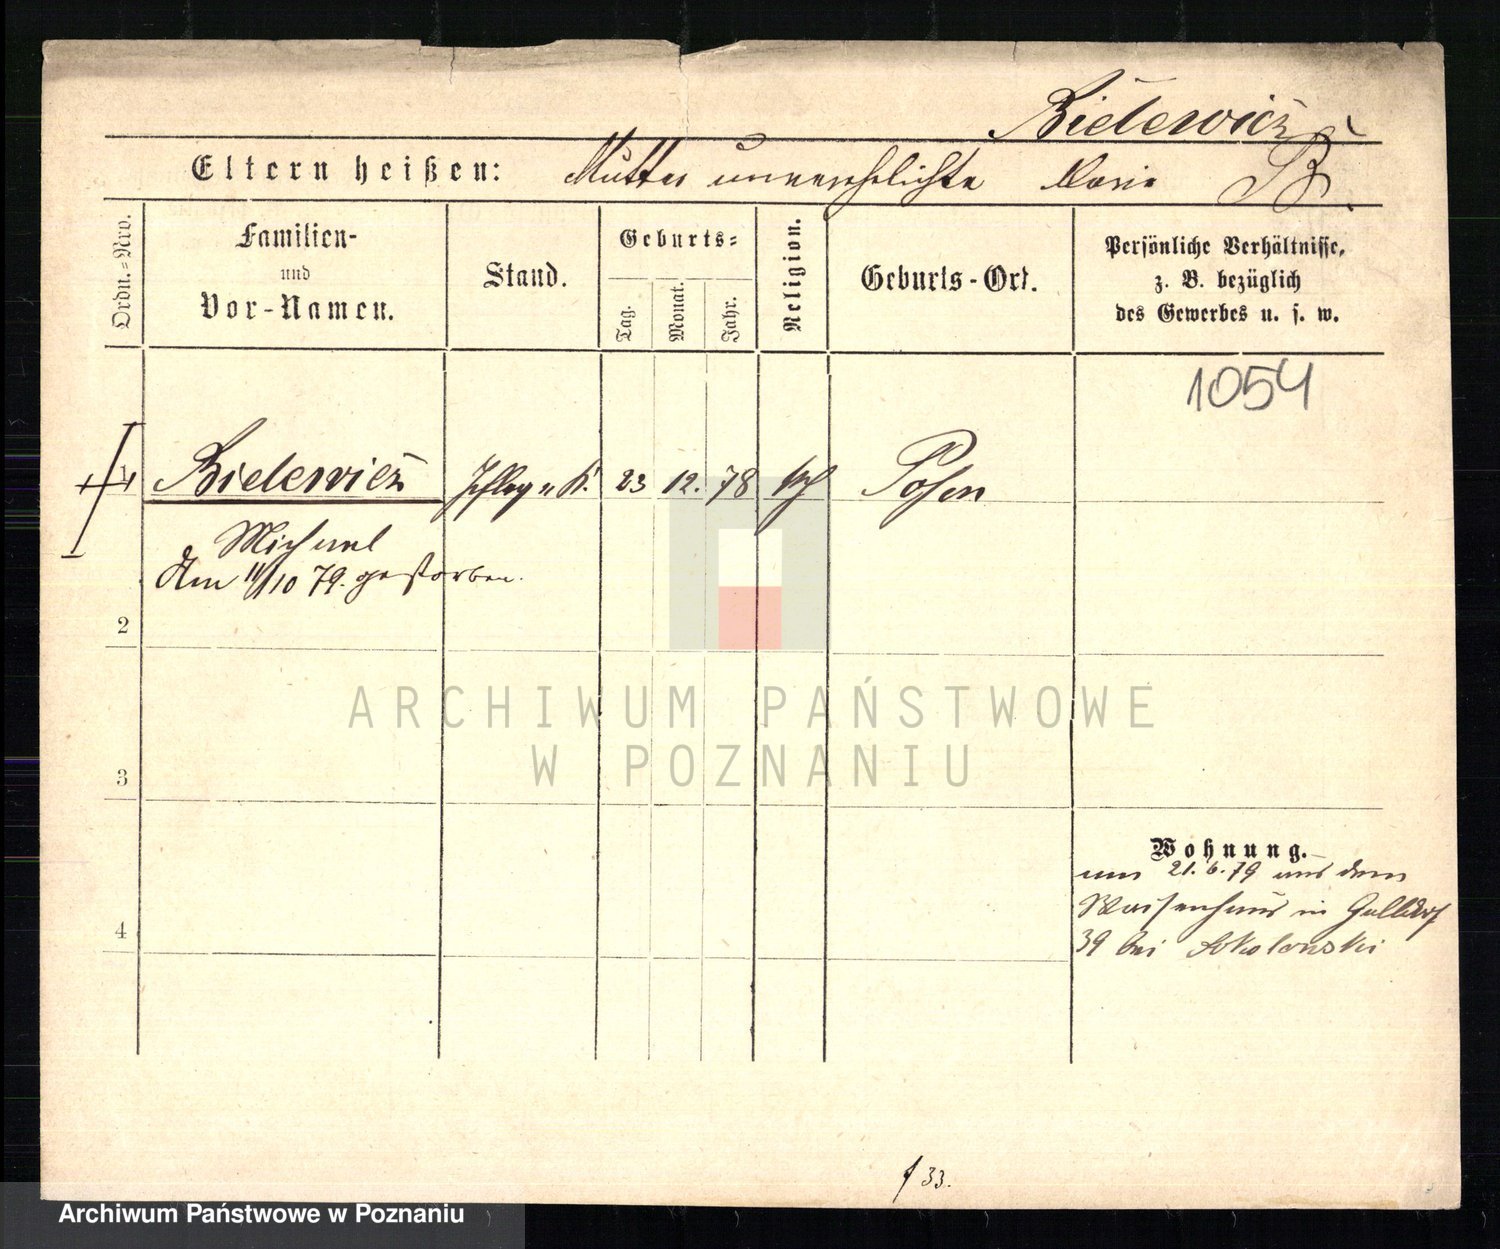 Bielewicz
Eltern heißen: Mutter unverehelichte Marie B.
Ordn.-Nro.
Familien-
und
Vor-Namen.
Stand.
Geburts-
Tag.
Monat.
Jahr.
Religion.
Geburts-Ort.
Persönliche Verhältnisse,
z. B. bezüglich
des Gewerbes u. s. w.
1054
1 Bielewicz 23 12. 78 Posen
Michael
Am 11/10 79. gestorben.
2
3
4
Wohnung.
21.6.79 aus dem
Waisenhaus in
39 bei Sokolowski
33.
ARCHIWUM PAŃSTWOWE
W POZNANIU
Archiwum Państwowe w Poznaniu